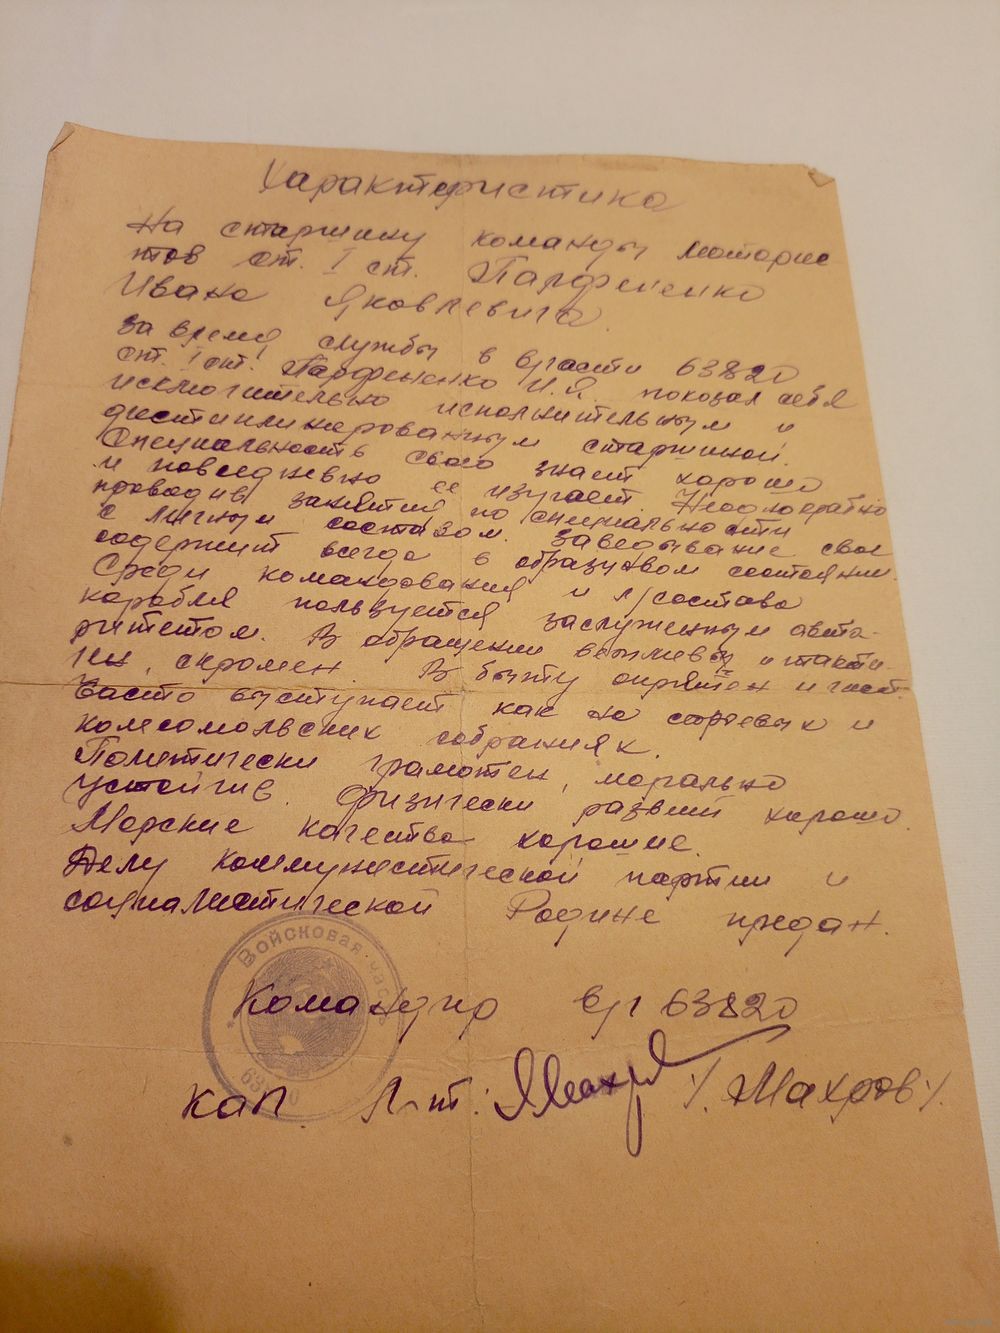 Характеристика
На старшину команды мотарис
тов ст. I ст. Парфененко
Ивана Яковлевича.
За время службы в в/части 63820
ст. I ст. Парфененко И.Я. показал себя
исключительно исполнительным и
дисциплинированным старшиной.
Специальность свою знает хорошо
и повседневно ее изучает. Неоднократно
проводив занятия по специальности
с личным составом. Заведывание свое
содержит всегда в образцовом состоянии.
Среди командования и л/состава
корабля пользуется заслуженным авто-
ритетом. В обращении вежливый и такти
чен, скромен. В быту опрятен и чист.
Часто выступает как на
комсомольских собраниях.
Политически грамотен, морально
устойчив. Физически развит хорошо.
Морские качества хорошие.
Делу коммунистической партии и
социалистической Родине предан.
Войсковая часть
63820
Командир в/ч 63820
кап. л-т: /Махров/.